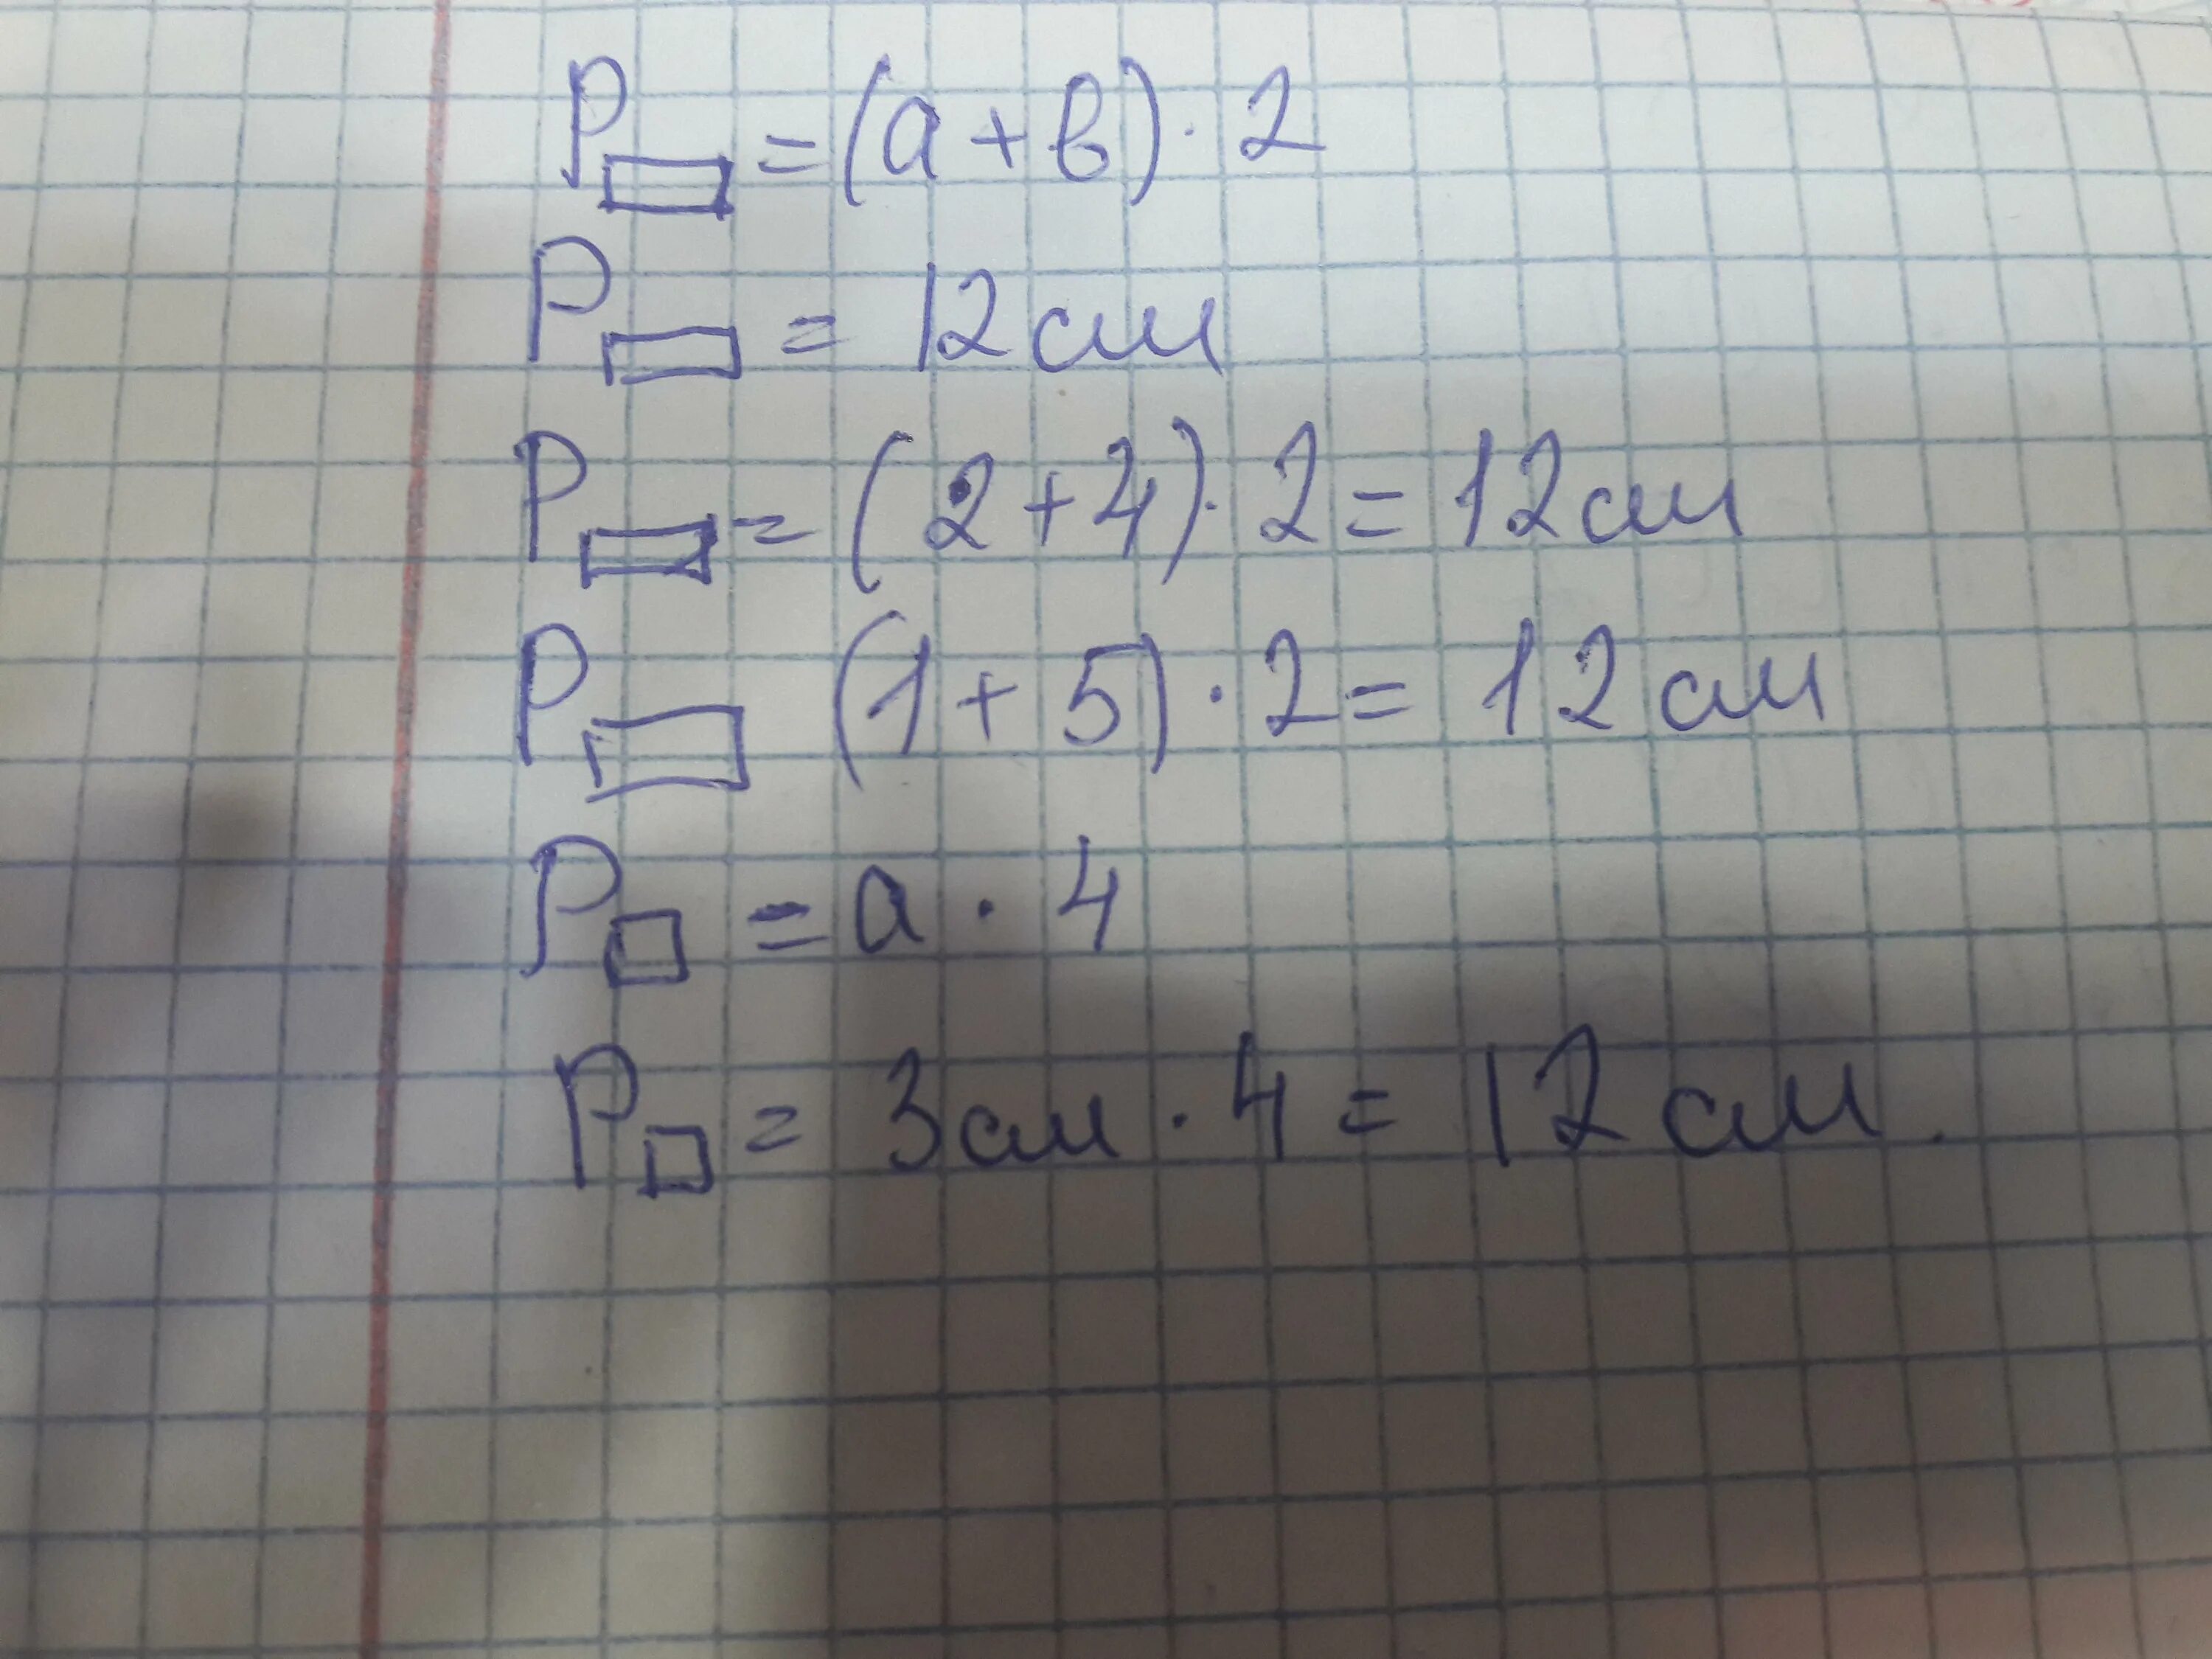 P▭ = (a + b) · 2
P▭ = 12 см
P▭ = (2 + 4) · 2 = 12 см
P▭ (1 + 5) · 2 = 12 см
P□ = a · 4
P□ = 3 см · 4 = 12 см.